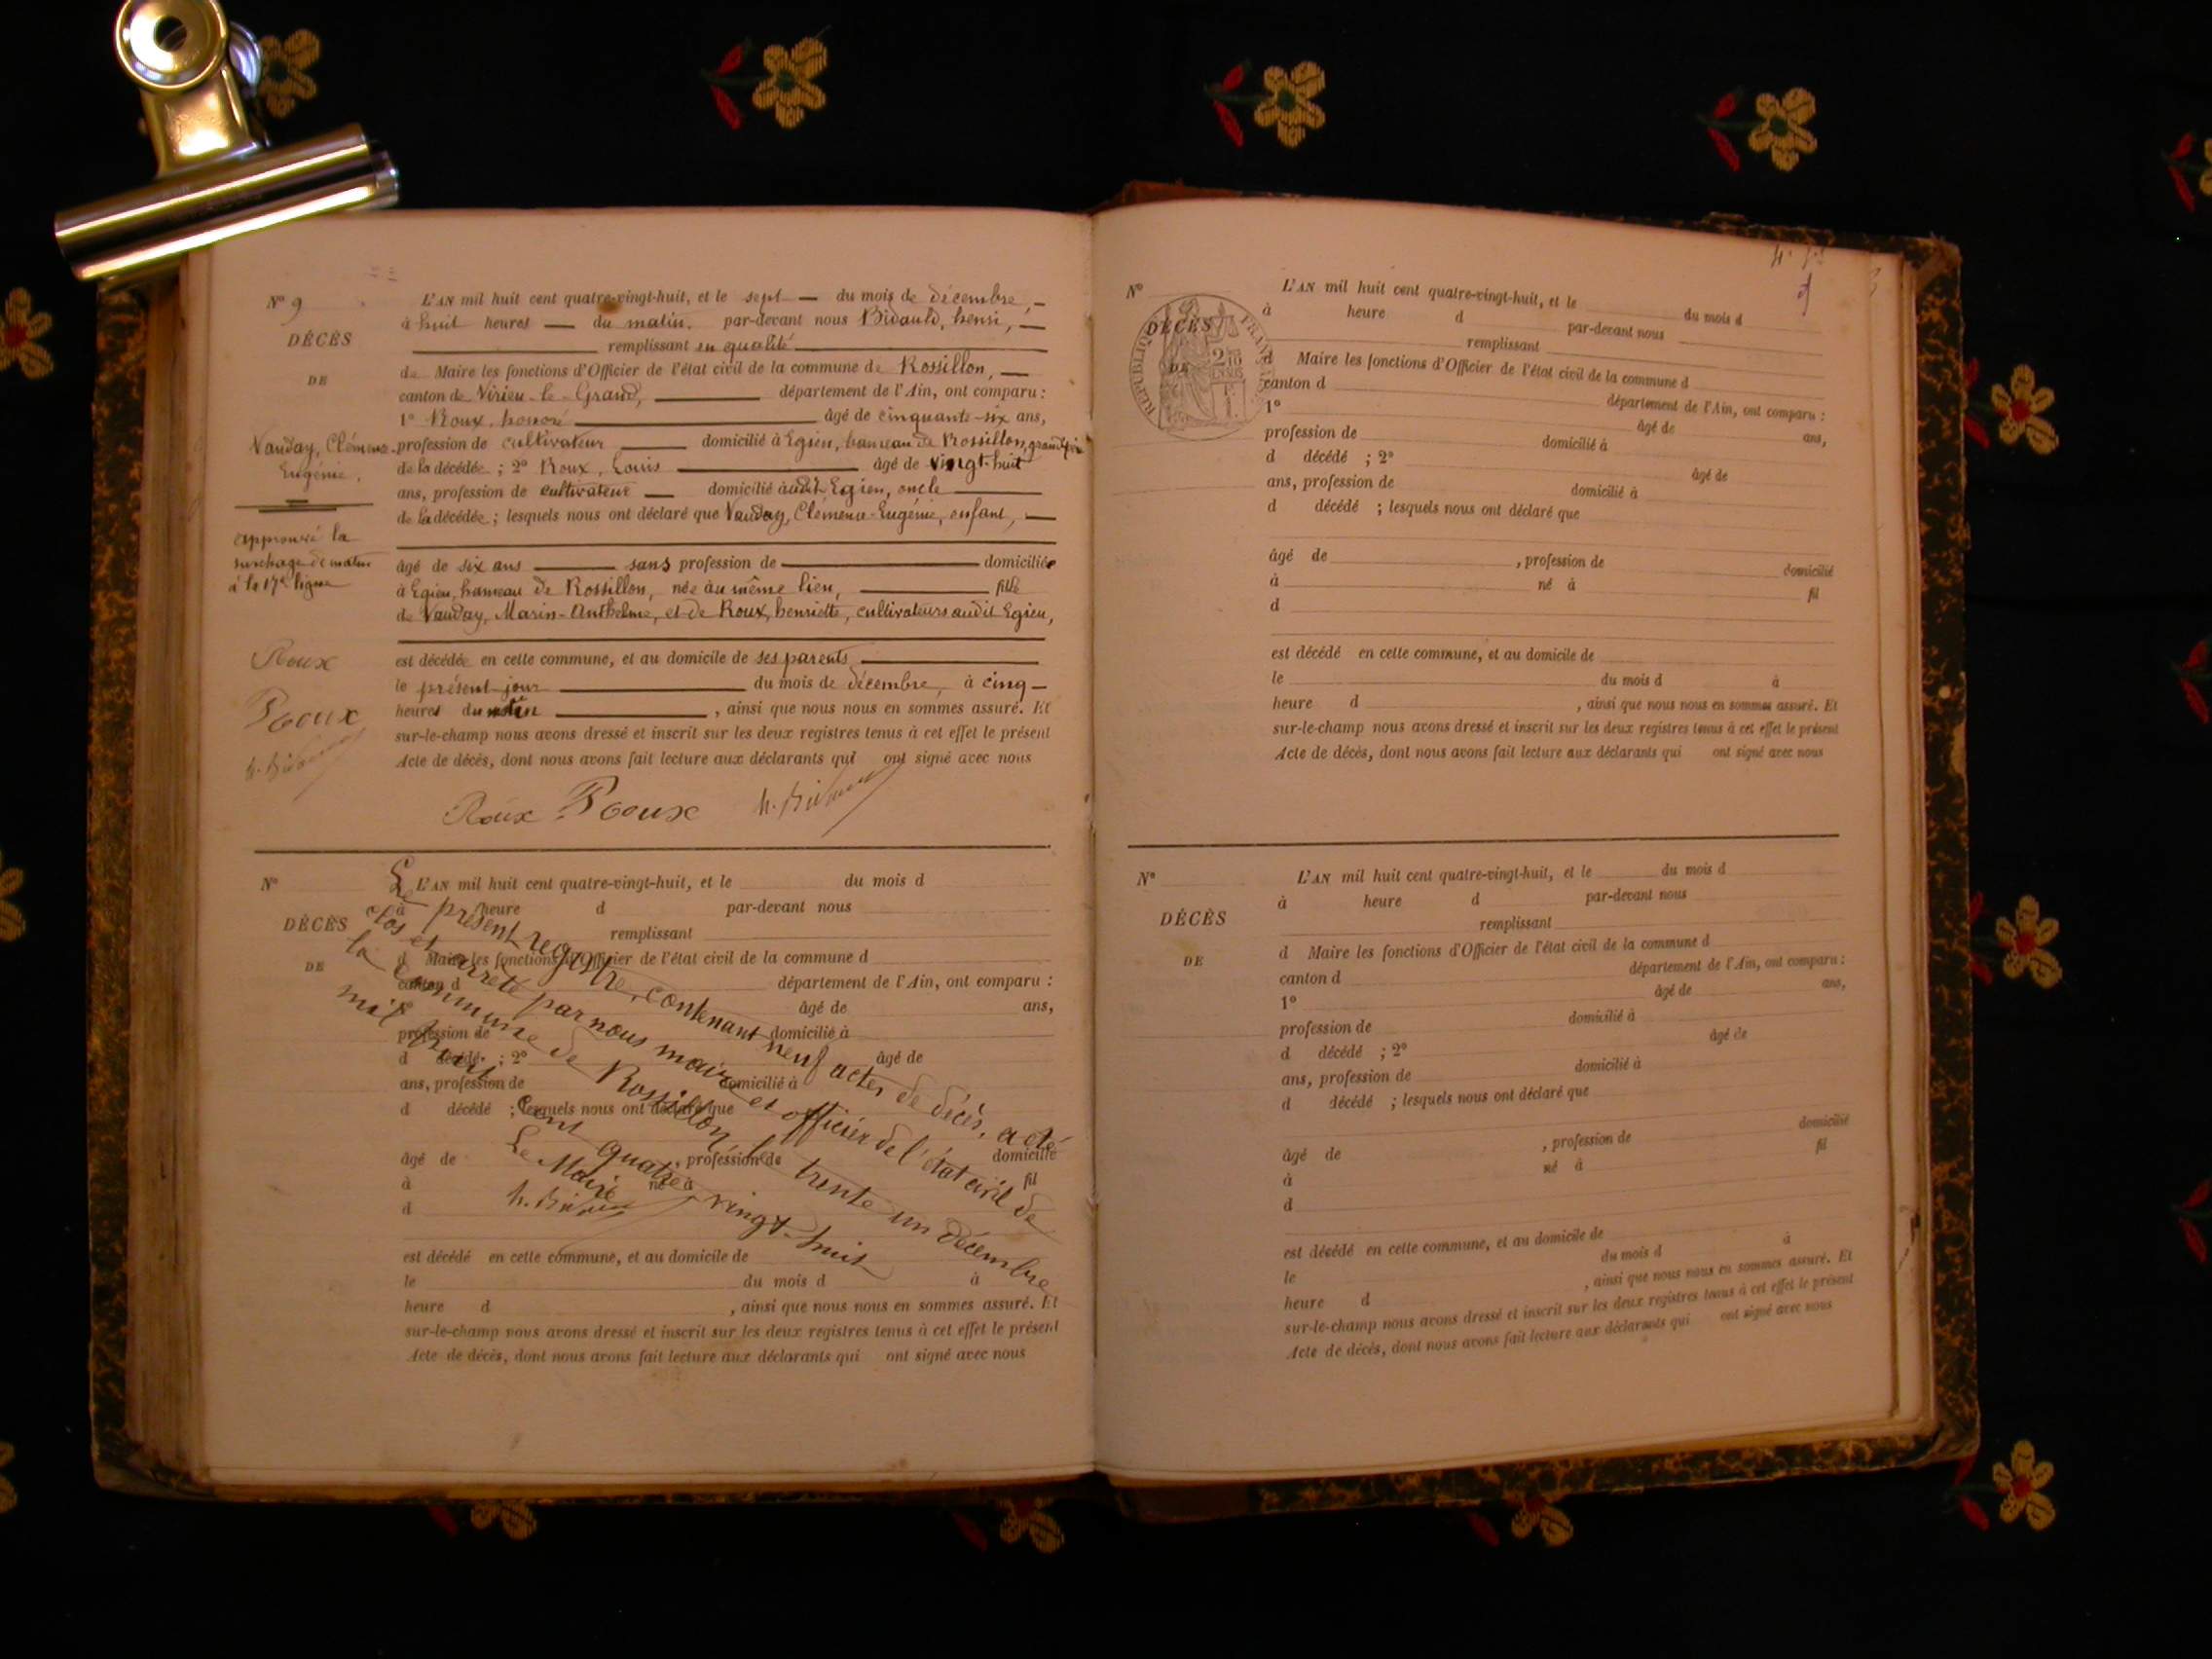 N° 9
DÉCÈS
DE
Vauday, Clémence-
Eugénie.
approuvé la
surchage de matin
à la 17e ligne
Roux
Roux
L'AN mil huit cent quatre-vingt-huit, et le sept — du mois de décembre, —
à huit heures — du matin. par-devant nous Bidauld, henri, —
remplissant en qualité
de Maire les fonctions d'Officier de l'état civil de la commune de Rossillon, —
canton de Virieu-le-Grand, département de l'Ain, ont comparu :
1° Roux, honoré âgé de cinquante-six ans,
profession de cultivateur domicilié à Egieu, hameau de Rossillon, grand-père
de la décédée ; 2° Roux, Louis âgé de vingt-huit
ans, profession de cultivateur — domicilié audit Egieu, oncle
de la décédée ; lesquels nous ont déclaré que Vauday, Clémence-Eugénie, enfant, —
âgé de six ans sans profession de domiciliée
à Egieu, hameau de Rossillon, née au même lieu, fille
de Vauday, Marin-Anthelme, et de Roux, henriette, cultivateurs audit Egieu,
est décédée en cette commune, et au domicile de ses parents
le présent jour du mois de décembre, à cinq —
heures du matin , ainsi que nous nous en sommes assuré. Et
sur-le-champ nous avons dressé et inscrit sur les deux registres tenus à cet effet le présent
Acte de décès, dont nous avons fait lecture aux déclarants qui ont signé avec nous
Roux Roux h. Bidauld
N°
DÉCÈS
DE
L'AN mil huit cent quatre-vingt-huit, et le du mois d
à heure d par-devant nous
remplissant
d Maire les fonctions d'Officier de l'état civil de la commune d
canton d département de l'Ain, ont comparu :
1° âgé de ans,
profession de domicilié à
d décédé ; 2° âgé de
ans, profession de domicilié à
d décédé ; lesquels nous ont déclaré que
âgé de , profession de domicilié
à né à fil
d
est décédé en cette commune, et au domicile de
le du mois d à
heure d , ainsi que nous nous en sommes assuré. Et
sur-le-champ nous avons dressé et inscrit sur les deux registres tenus à cet effet le présent
Acte de décès, dont nous avons fait lecture aux déclarants qui ont signé avec nous
Le présent registre, contenant neuf actes de décès, a été
clos et arrêté par nous maire et officier de l'état civil de
la commune de Rossillon, le trente un décembre
mil huit cent quatre-vingt-huit
Le Maire
h. Bidauld
N°
DÉCÈS
DE
RÉPUBLIQUE FRANÇAISE
2/10 EN SUS
L'AN mil huit cent quatre-vingt-huit, et le du mois d
à heure d par-devant nous
remplissant
d Maire les fonctions d'Officier de l'état civil de la commune d
canton d département de l'Ain, ont comparu :
1° âgé de ans,
profession de domicilié à
d décédé ; 2° âgé de
ans, profession de domicilié à
d décédé ; lesquels nous ont déclaré que
âgé de , profession de domicilié
à né à fil
d
est décédé en cette commune, et au domicile de
le du mois d à
heure d , ainsi que nous nous en sommes assuré. Et
sur-le-champ nous avons dressé et inscrit sur les deux registres tenus à cet effet le présent
Acte de décès, dont nous avons fait lecture aux déclarants qui ont signé avec nous
N°
DÉCÈS
DE
L'AN mil huit cent quatre-vingt-huit, et le du mois d
à heure d par-devant nous
remplissant
d Maire les fonctions d'Officier de l'état civil de la commune d
canton d département de l'Ain, ont comparu :
1° âgé de ans,
profession de domicilié à
d décédé ; 2° âgé de
ans, profession de domicilié à
d décédé ; lesquels nous ont déclaré que
âgé de , profession de domicilié
à né à fil
d
est décédé en cette commune, et au domicile de
le du mois d à
heure d , ainsi que nous nous en sommes assuré. Et
sur-le-champ nous avons dressé et inscrit sur les deux registres tenus à cet effet le présent
Acte de décès, dont nous avons fait lecture aux déclarants qui ont signé avec nous